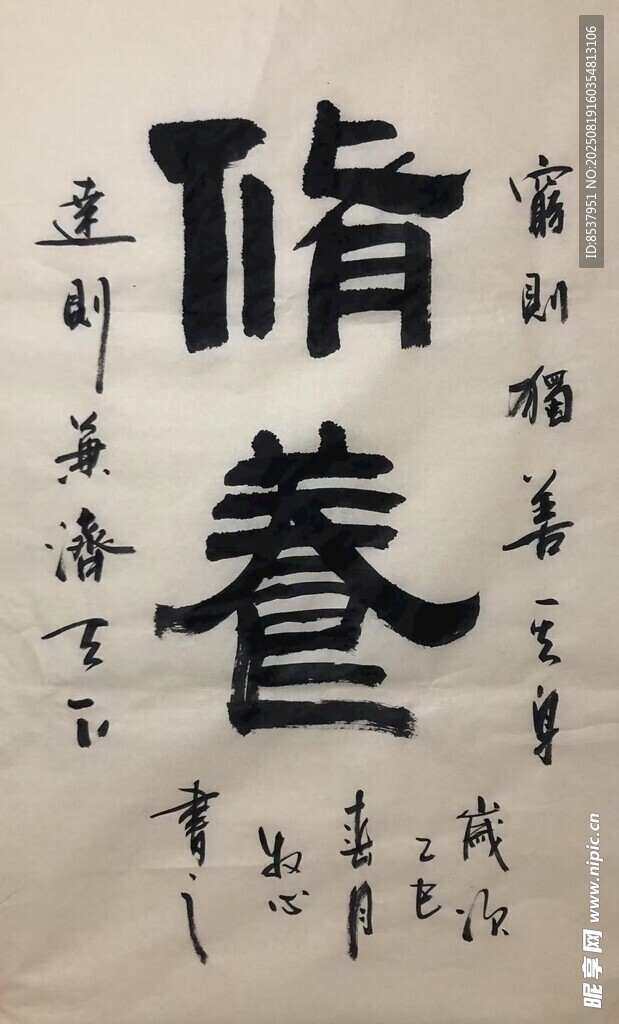 脩養
窮則獨善其身
達則兼濟天下
歲次
乙巳
春月
牧心
書之
ID:8537951 NO:20250819160354813106
昵享网 www.nipic.cn